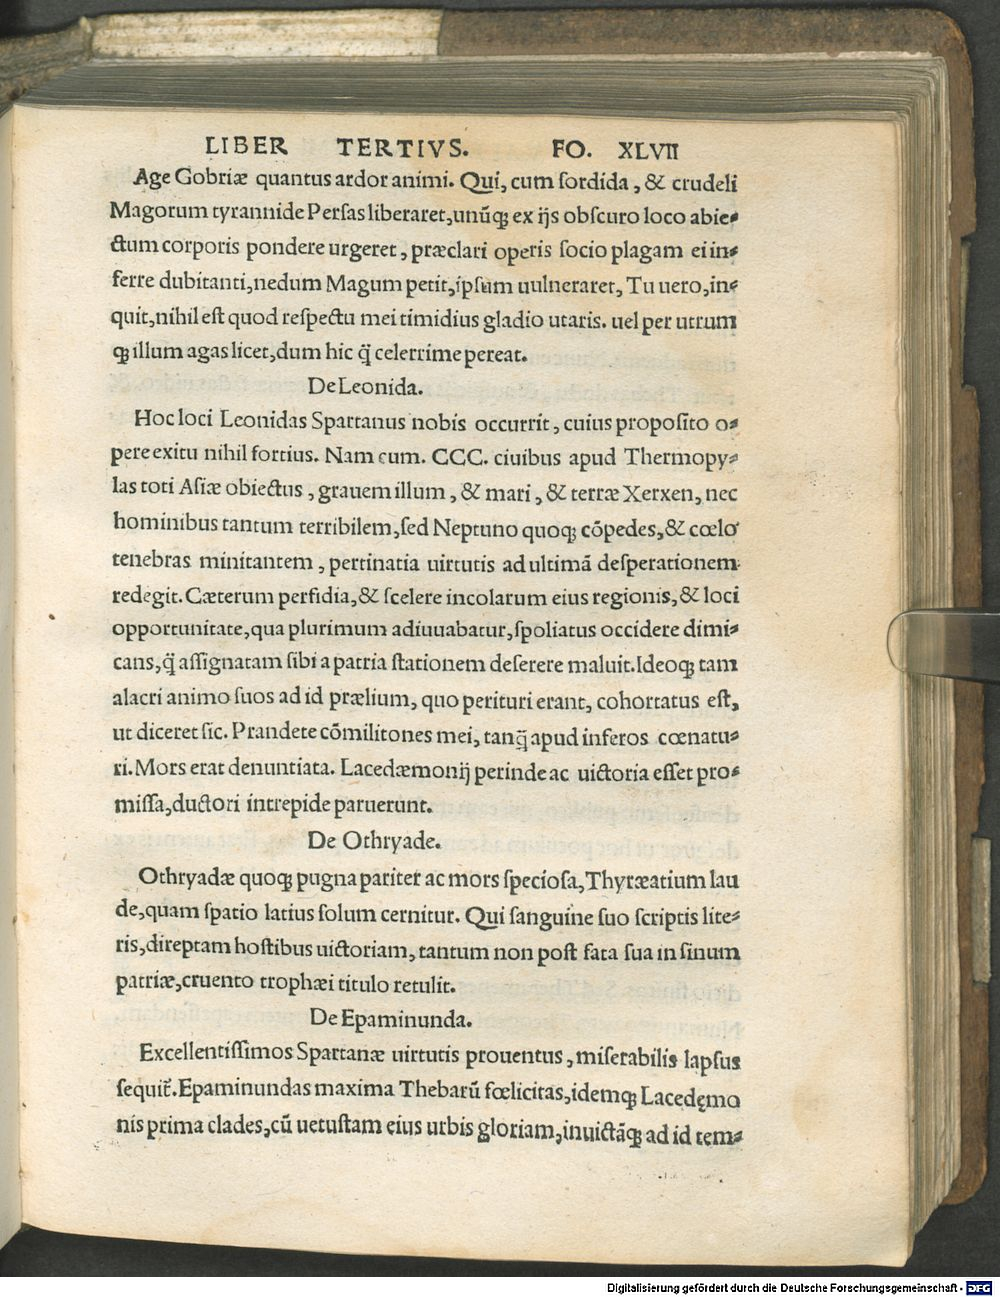 LIBER TERTIVS. FO. XLVII
Age Gobriæ quantus ardor animi. Qui, cum sordida, & crudeli
Magorum tyrannide Persas liberaret, unūq̃ ex ijs obscuro loco abie-
ctum corporis pondere urgeret, præclari operis socio plagam ei in-
ferre dubitanti, nedum Magum petit, ipsum uulneraret, Tu uero, in-
quit, nihil est quod respectu mei timidius gladio utaris. uel per utrum
q; illum agas licet, dum hic q̃ celerrime pereat.
De Leonida.
Hoc loci Leonidas Spartanus nobis occurrit, cuius proposito o-
pere exitu nihil fortius. Nam cum. CCC. ciuibus apud Thermopy-
las toti Asiæ obiectus, grauem illum, & mari, & terræ Xerxen, nec
hominibus tantum terribilem, sed Neptuno quoq; cōpedes, & cœlo
tenebras minitantem, pertinatia uirtutis ad ultimā desperationem
redegit. Cæterum perfidia, & scelere incolarum eius regionis, & loci
opportunitate, qua plurimum adiuuabatur, spoliatus occidere dimi-
cans, q̃ assignatam sibi a patria stationem deserere maluit. Ideoq; tam
alacri animo suos ad id prælium, quo perituri erant, cohortatus est,
ut diceret sic. Prandete cōmilitones mei, tanq̃ apud inferos cœnatu-
ri. Mors erat denuntiata. Lacedæmonij perinde ac uictoria esset pro-
missa, ductori intrepide paruerunt.
De Othryade.
Othryadæ quoq; pugna pariter ac mors speciosa, Thyræatium lau
de, quam spatio latius solum cernitur. Qui sanguine suo scriptis lite-
ris, direptam hostibus uictoriam, tantum non post fata sua in sinum
patriæ, cruento trophæi titulo retulit.
De Epaminunda.
Excellentissimos Spartanæ uirtutis prouentus, miserabilis lapsus
sequit̃. Epaminundas maxima Thebarū fœlicitas, idemq; Lacedęmo
nis prima clades, cū uetustam eius urbis gloriam, inuictāq; ad id tem-
Digitalisierung gefördert durch die Deutsche Forschungsgemeinschaft - DFG